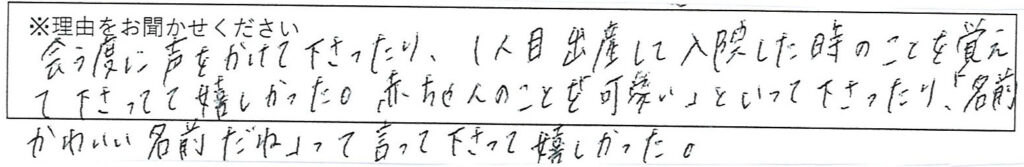 ※理由をお聞かせください
会う度に声をかけて下さったり、1人目出産して入院した時のことを覚え
て下さってて嬉しかった。赤ちゃんのことを「可愛い」といって下さったり、「名前
かわいい名前だね」って言って下さって嬉しかった。